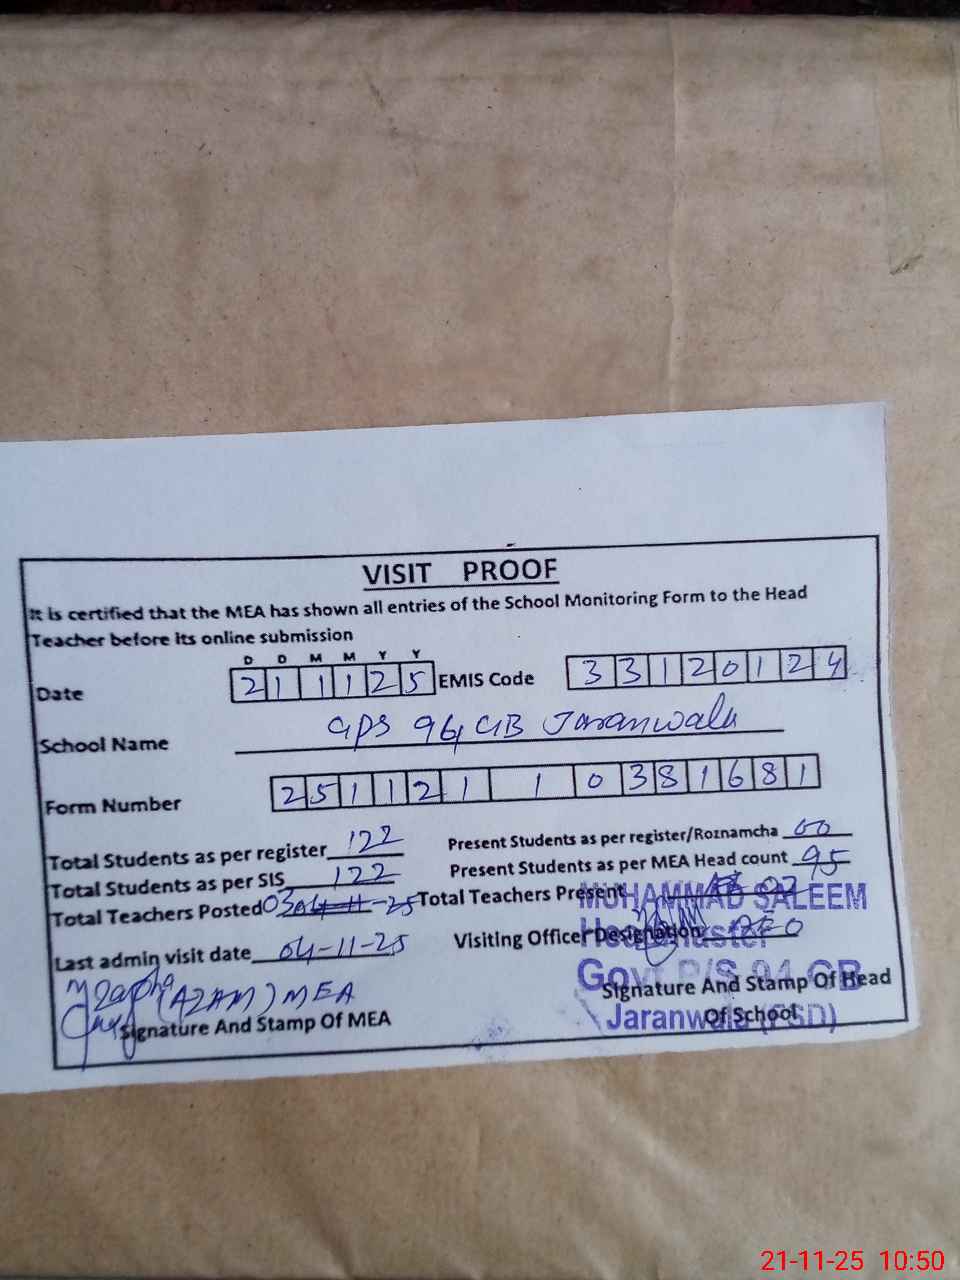 VISIT PROOF
It is certified that the MEA has shown all entries of the School Monitoring Form to the Head
Teacher before its online submission
D D M M Y Y
Date 21 11 25 EMIS Code 33120124
School Name GPS 94 GB Jaranwala
Form Number 251121 1 0381681
Total Students as per register 122 Present Students as per register/Roznamcha 00
Total Students as per SIS 122 Present Students as per MEA Head count 95
Total Teachers Posted 03 Total Teachers Present 02
Last admin visit date 04-11-25 Visiting Officer Designation AEO
(AZAM) MEA
Signature And Stamp Of MEA
Signature And Stamp Of Head
Of School
MUHAMMAD SALEEM
Headmaster
Govt P/S 94 GB
Jaranwala (FSD)
21-11-25 10:50